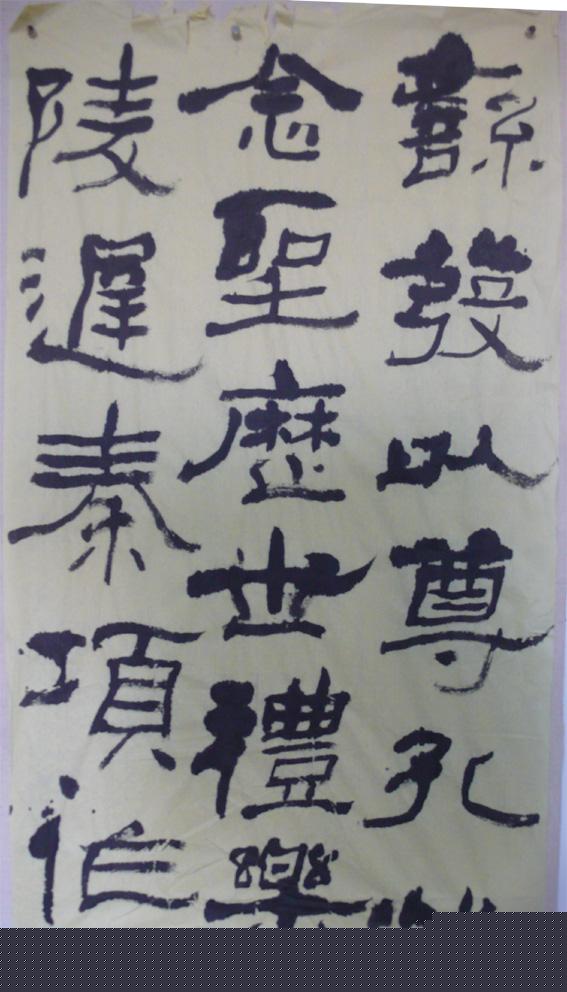 繇發以尊孔
念聖歷世禮樂
陵遲秦項作